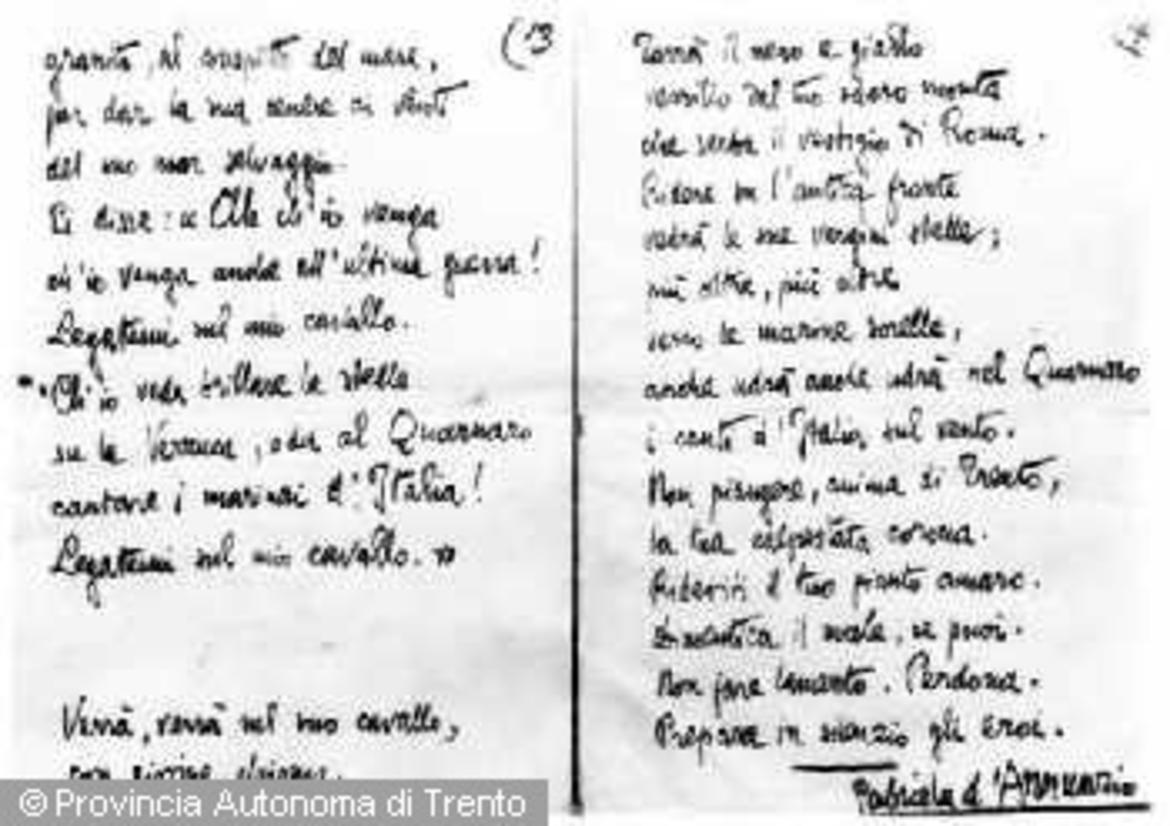 granito, al cospetto del mare,
per dar la mia cenere ai venti
del mio mar selvaggio.
Ei disse: « Oh ch'io venga
ch'io venga anche all'ultima guerra!
Legatemi sul mio cavallo.
"Ch'io veda brillare le stelle
su la Verruca, oda al Quarnaro
cantare i marinai d'Italia!
Legatemi sul mio cavallo. »
Verrà, verrà sul suo cavallo,
con giovine chioma.
(13
Torrà il nero e giallo
vessillo dal tuo sacro monte
che serba il vestigio di Roma.
Ridere su l'antica fronte
vedrà le sue vergini stelle;
più oltre, più oltre
verso le marine sorelle,
anche udrà anche udrà nel Quarnaro
i canti d'Italia sul vento.
Non piangere, anima di Trento,
la tua calpestata corona.
Ribeviti il tuo pianto amaro.
Dimentica il male, se puoi.
Non fare lamento. Perdona.
Prepara in silenzio gli eroi.
Gabriele d'Annunzio
© Provincia Autonoma di Trento